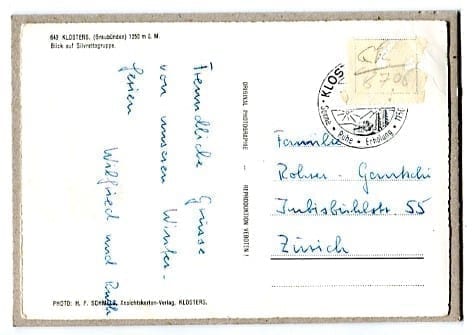 643 KLOSTERS. (Graubünden) 1250 m ü. M.
Blick auf Silvrettagruppe.
Freundliche Grüsse
von unseren Winter-
ferien
Wilfried und Ruth
ORIGINAL PHOTOGRAPHIE - REPRODUKTION VERBOTEN!
KLOST
Sonne · Ruhe · Erholung
Familie
Rohner-Gantschi
Imbisbühlstr 55
Zürich
PHOTO: H. F. SCHM Ansichtskarten-Verlag, KLOSTERS.